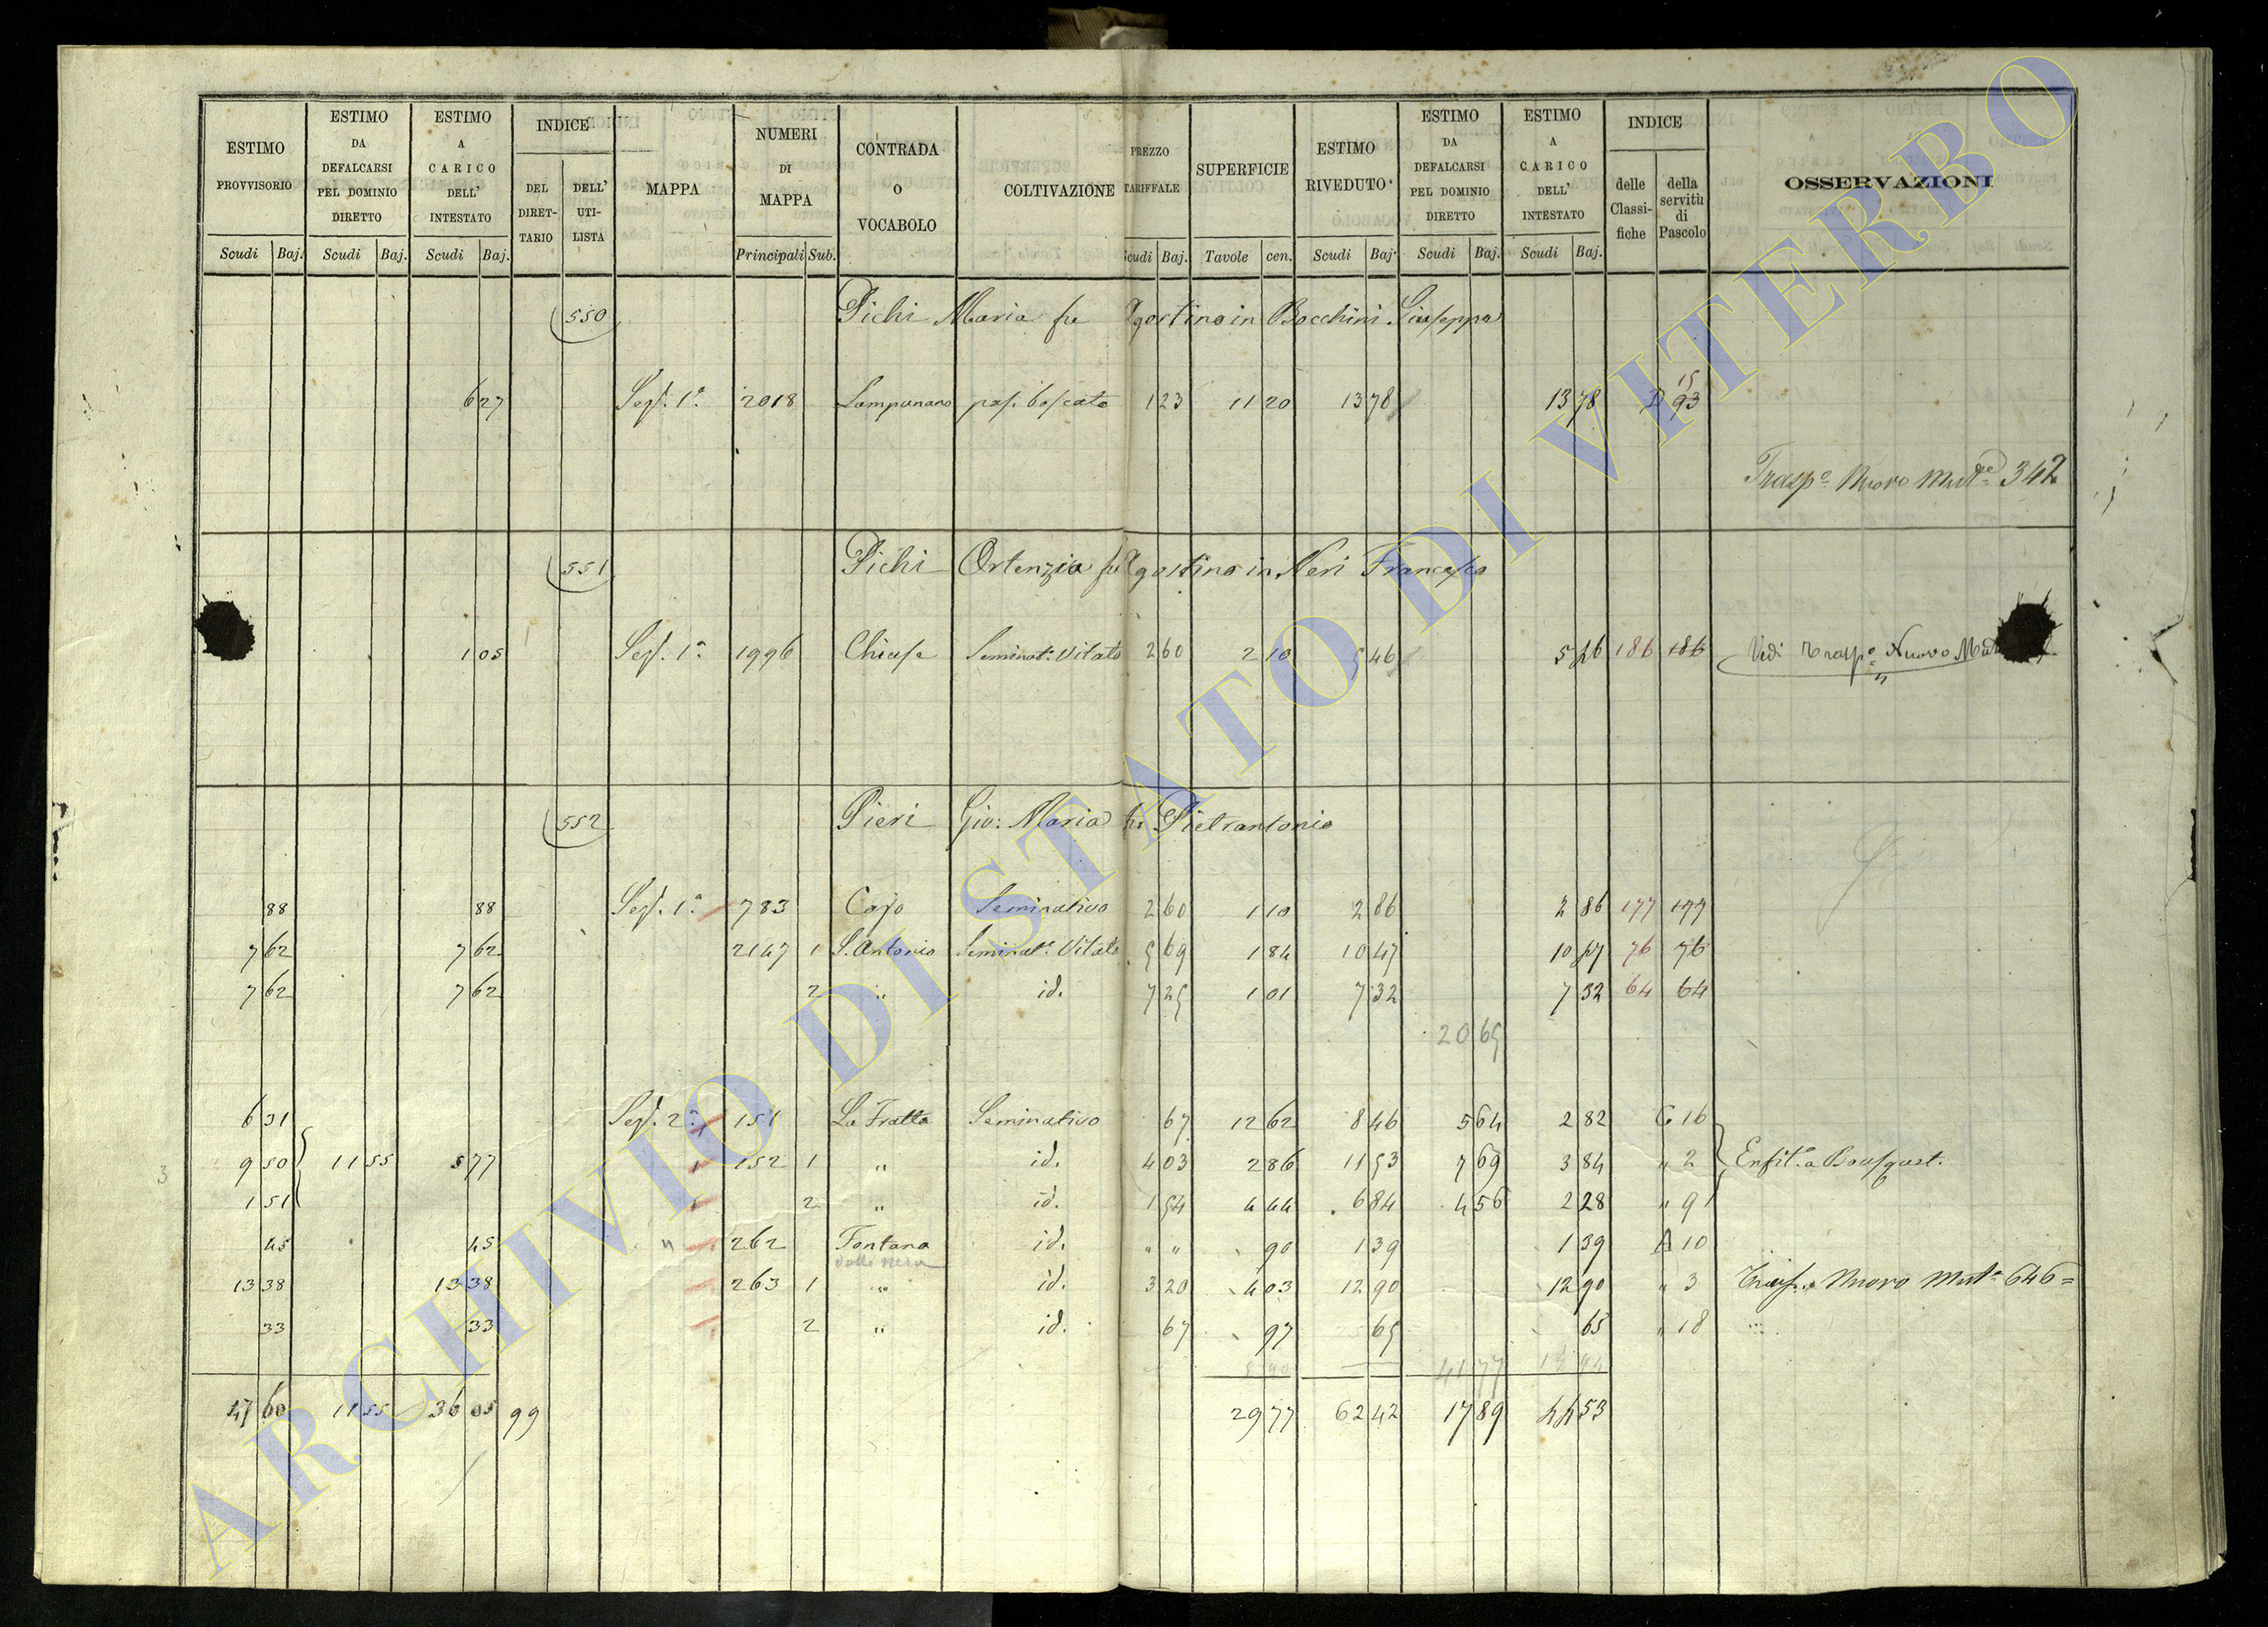 ESTIMO PROVVISORIO ESTIMO DA DEFALCARSI PEL DOMINIO DIRETTO ESTIMO A CARICO DELL' INTESTATO INDICE DEL DIRETTARIO DELL' UTILISTA MAPPA NUMERI DI MAPPA CONTRADA O VOCABOLO COLTIVAZIONE PREZZO TARIFFALE SUPERFICIE ESTIMO RIVEDUTO ESTIMO DA DEFALCARSI PEL DOMINIO DIRETTO ESTIMO A CARICO DELL' INTESTATO INDICE delle Classifiche della servitù di Pascolo OSSERVAZIONI
Scudi Baj. Scudi Baj. Scudi Baj. Principali Sub. Scudi Baj. Tavole cen. Scudi Baj. Scudi Baj. Scudi Baj.
550 Pichi Maria fu Agostino in Bocchini Giuseppe
6 27 Sez. 1a 2018 pas. boscato 1 23 11 20 13 78 13 78 D 93
15
Trasp. Nuovo Mut.e 342
551 Pichi Ortenzia fu Agostino in Neri Francesco
1 05 Sez. 1a 1996 Chiuse Seminat. Vitato 2 60 2 10 5 46 5 46 186 186 Vedi Trasp. Nuovo
552 Pieri Gio: Maria fu Pietrantonio
88 88 Sez. 1a 783 Cajo Seminativo 2 60 1 10 2 86 2 86 177 177
7 62 7 62 2147 1 S. Antonio Seminat. Vitato 5 69 1 84 10 47 10 47 76 76
7 62 7 62 2 " id. 7 25 1 01 7 32 7 32 64 64
20 65
6 31 Sez. 2a 151 La Fratta Seminativo 67 12 62 8 46 5 64 2 82 C 16
9 50 11 55 5 77 152 1 " id. 4 03 2 86 11 53 7 69 3 84 " 2 Enfit. a
1 51 2 " id. 1 54 4 44 6 84 4 56 2 28 " 9
45 45 " 262 Fontana id. " " 90 1 39 1 39 A 10
della Nera
13 38 13 38 263 1 " id. 3 20 4 03 12 90 12 90 " 3 Trasp. Nuovo Mut. 646=
33 33 2 " id. 67 97 65 65 " 18
41 77
47 60 11 55 36 05 99 29 77 62 42 17 89 44 53
3
ARCHIVIO DI STATO DI VITERBO